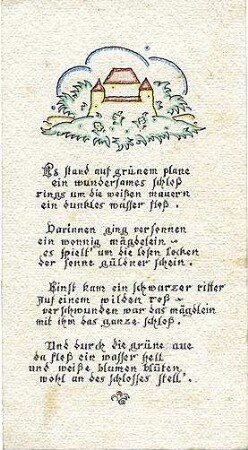 Es stand auf grünem plane
ein wundersames schloß
rings um die weißen mauern
ein dunkles wasser floß.
Darinnen ging versonnen
ein wonnig mägdelein –
es spielt' um die losen locken
der sonne güldner schein.
Einst kam ein schwarzer ritter
auf einem wilden roß –
verschwunden war das mägdlein
mit ihm das ganze schloß.
Und durch die grüne aue
da floß ein wasser hell
und weiße blumen blüten
wohl an des schlosses stell'.